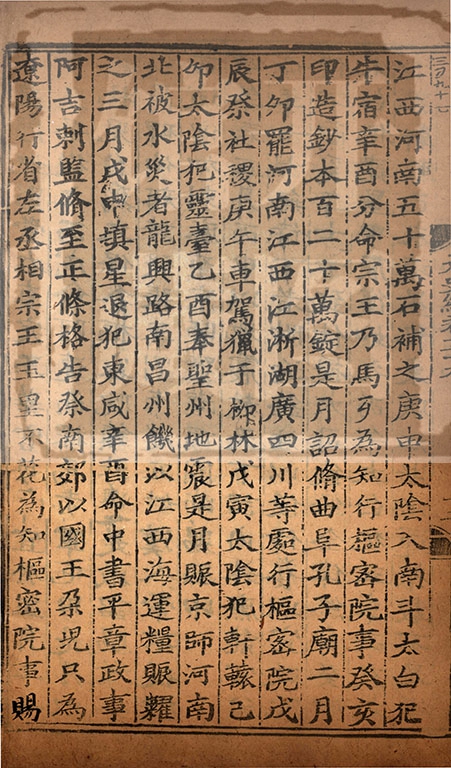 江西河南五十萬石補之庚申太陰入南斗太白犯
牛宿辛酉分命宗王乃馬歹為知行樞密院事癸亥
印造鈔本百二十萬錠是月詔脩曲阜孔子廟二月
丁卯罷河南江西江浙湖廣四川等處行樞密院戊
辰祭社稷庚午車駕獵于柳林戊寅太陰犯軒轅己
卯太陰犯靈臺乙酉奉聖州地震是月賑京師河南
北被水災者龍興路南昌州饑以江西海運糧賑糶
之三月戊申填星退犯東咸辛酉命中書平章政事
阿吉剌監脩至正條格告祭南郊以國王朶兒只為
遼陽行省左丞相宗王玉里不花為知樞密院事賜